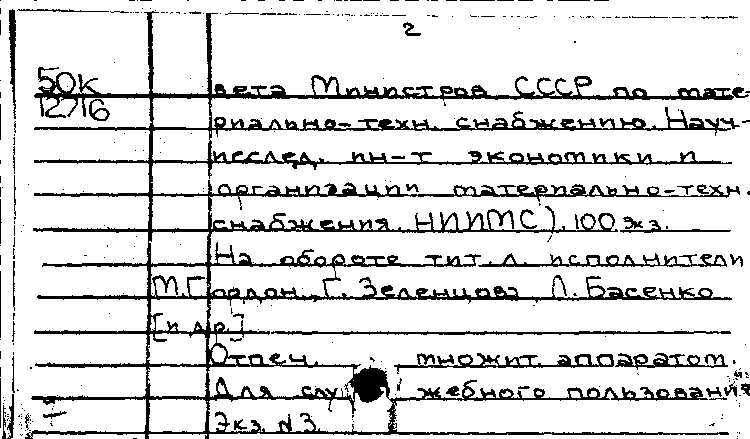 2
50К
12716
вета Министров СССР по мате-
риально-техн. снабжению. Науч-
исслед. ин-т экономики и
организации материально-техн.
снабжения. НИИМС). 100 экз.
На обороте тит. л. исполнители
М.Гордон, Г. Зеленцова, Л. Басенко
[и др.]
Отпеч. множит. аппаратом.
Для служебного пользования
Экз. №3.